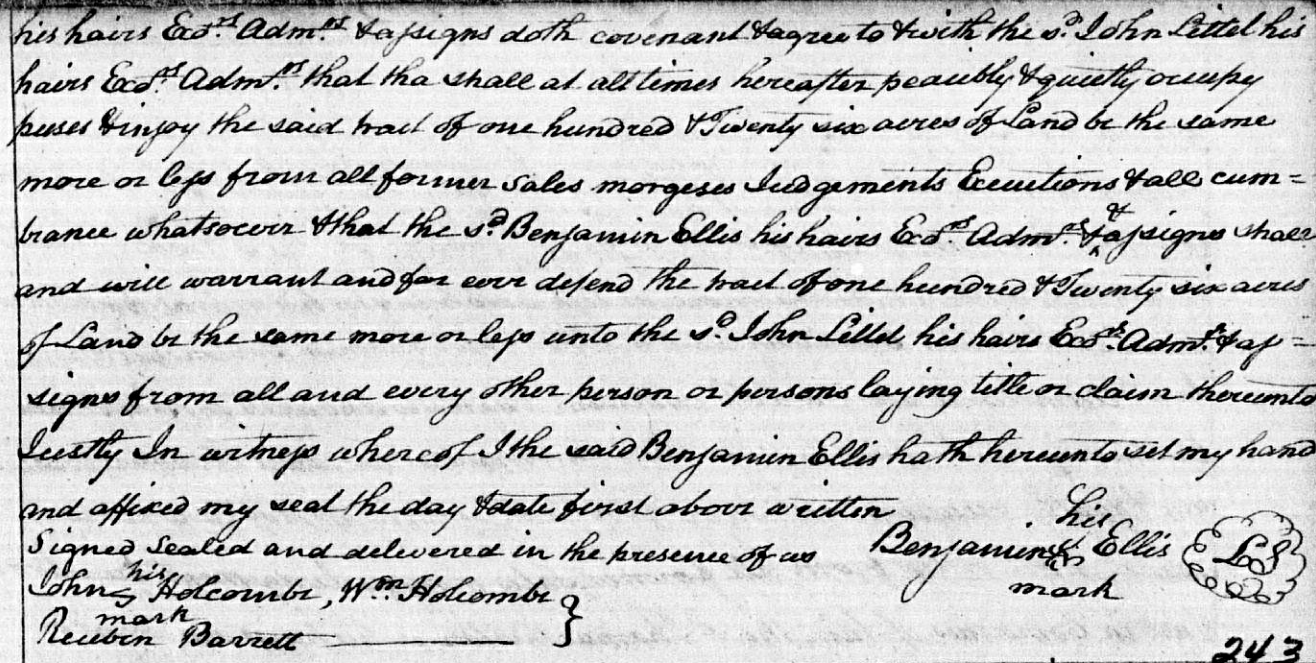 his hairs Exo.rs Adm.rs & assigns doth covenant & agree to & with the s.d John Littel his
hairs Exo.rs Adm.rs that tha shall at all times hereafter peacibly & quietly occupy
peses & injoy the said tract of one hundred & Twenty six acres of Land be the same
more or less from all former sales morgeses Judgements Executions & all cum=
brance whatsoever & that the s.d Benjamin Ellis his hairs Exo.rs Adm.rs & assigns shall
and will warrant and for ever defend the tract of one hundred & Twenty six acres
of Land be the same more or less unto the s.d John Littel his hairs Exo.rs Adm.rs & as=
signs from all and every other person or persons laying title or claim thereunto
Justly In witness whereof I the said Benjamin Ellis hath hereunto set my hand
and affixed my seal the day & date first above written
Signed Sealed and delivered in the presence of us
his
Benjamin Ellis LS
mark
his
John Holcombe, Wm Holcombe
mark
Reuben Barrett
243